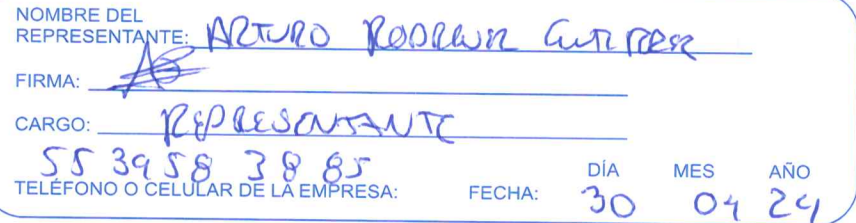 NOMBRE DEL
REPRESENTANTE: ARTURO RODRIGUEZ GUTIERREZ
FIRMA:
CARGO: REPRESENTANTE
55 3958 3885 DÍA MES AÑO
TELÉFONO O CELULAR DE LA EMPRESA: FECHA: 30 04 24